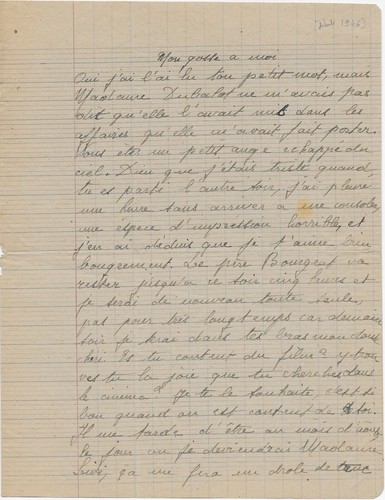 Mon gosse a moi
Oui j'ai l'ai lu ton petit mot, mais
Madame Dubalot ne m'avais pas
dit qu'elle l'avait mis dans les
affaires qu'elle m'avait fait porter.
Vous etes un petit ange echappé du
ciel. Dieu que j'étais triste quand
tu es parti l'autre soir, j'ai pleuré
une heure sans arriver a me consoler,
une espece d'impression horrible, et
j'en ai déduis que je t'aime
bougrement. Le père Bourgeat va
rester jusqu'a ce soir cinq heures et
je serai de nouveau toute seule,
pas pour très longtemps car demain
soir je serai dans tes bras mon
chéri. Es tu content du film? y trou
ves tu la joie que tu cherches dans
le cinema? Je te le souhaite, c'est si
bon quand on est content de soi.
Il me tarde d'être au mois d'
le jour ou je deviendrai Madame
ça me fera un drole de